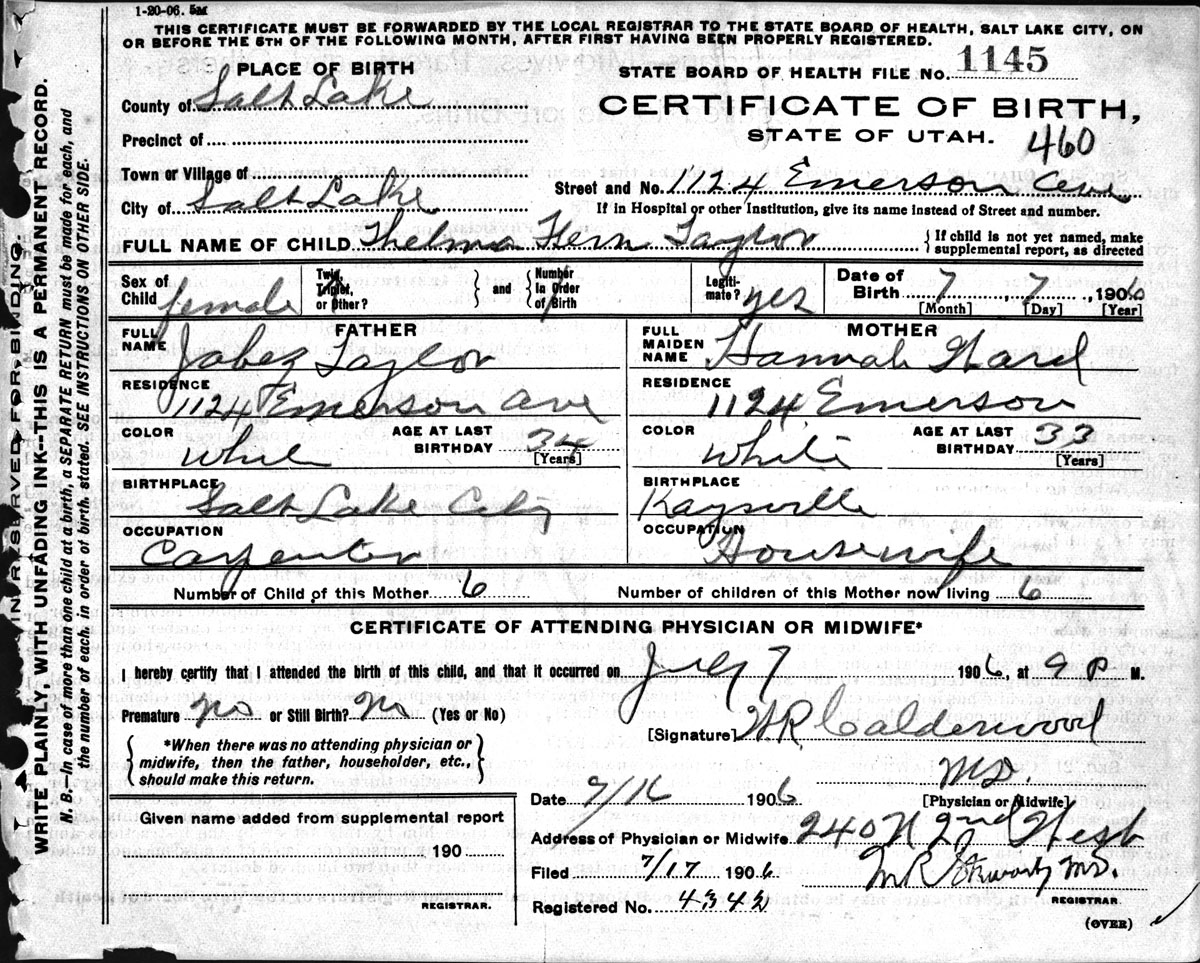 1-20-06. 5M
THIS CERTIFICATE MUST BE FORWARDED BY THE LOCAL REGISTRAR TO THE STATE BOARD OF HEALTH, SALT LAKE CITY, ON
OR BEFORE THE 5TH OF THE FOLLOWING MONTH, AFTER FIRST HAVING BEEN PROPERLY REGISTERED.
PLACE OF BIRTH
STATE BOARD OF HEALTH FILE NO. 1145
County of Salt Lake
CERTIFICATE OF BIRTH,
Precinct of
STATE OF UTAH.
460
Town or Village of
Street and No. 1124 Emerson Ave
City of Salt Lake
If in Hospital or other Institution, give its name instead of Street and number.
FULL NAME OF CHILD Thelma Fern Taylor
{If child is not yet named, make
supplemental report, as directed
Sex of Child female
Twin, Triplet, or Other?
} and {
Number In Order of Birth
Legiti-mate? yes
Date of Birth 7, 7, 1906
[Month] [Day] [Year]
FATHER
FULL NAME Jabez Taylor
RESIDENCE
1124 Emerson Ave
COLOR White
AGE AT LAST BIRTHDAY 34
[Years]
BIRTHPLACE
Salt Lake City
OCCUPATION
Carpenter
MOTHER
FULL MAIDEN NAME Hannah Ward
RESIDENCE
1124 Emerson
COLOR White
AGE AT LAST BIRTHDAY 33
[Years]
BIRTHPLACE
Kaysville
OCCUPATION
Housewife
Number of Child of this Mother 6
Number of children of this Mother now living 6
CERTIFICATE OF ATTENDING PHYSICIAN OR MIDWIFE*
I hereby certify that I attended the birth of this child, and that it occurred on July 7 1906, at 9 P M.
Premature No or Still Birth? No (Yes or No)
[Signature] W R Calderwood
{*When there was no attending physician or
midwife, then the father, householder, etc.,
should make this return.}
M.D.
[Physician or Midwife]
Date 7/16 1906
Given name added from supplemental report
190
REGISTRAR.
Address of Physician or Midwife 240 N 2nd West
Filed 7/17 1906
M R Stewart M.D.
REGISTRAR.
Registered No. 4342
(OVER)
MARGIN RESERVED FOR BINDING.
WRITE PLAINLY, WITH UNFADING INK--THIS IS A PERMANENT RECORD.
N. B.—In case of more than one child at a birth, a SEPARATE RETURN must be made for each, and
the number of each, in order of birth, stated. SEE INSTRUCTIONS ON OTHER SIDE.